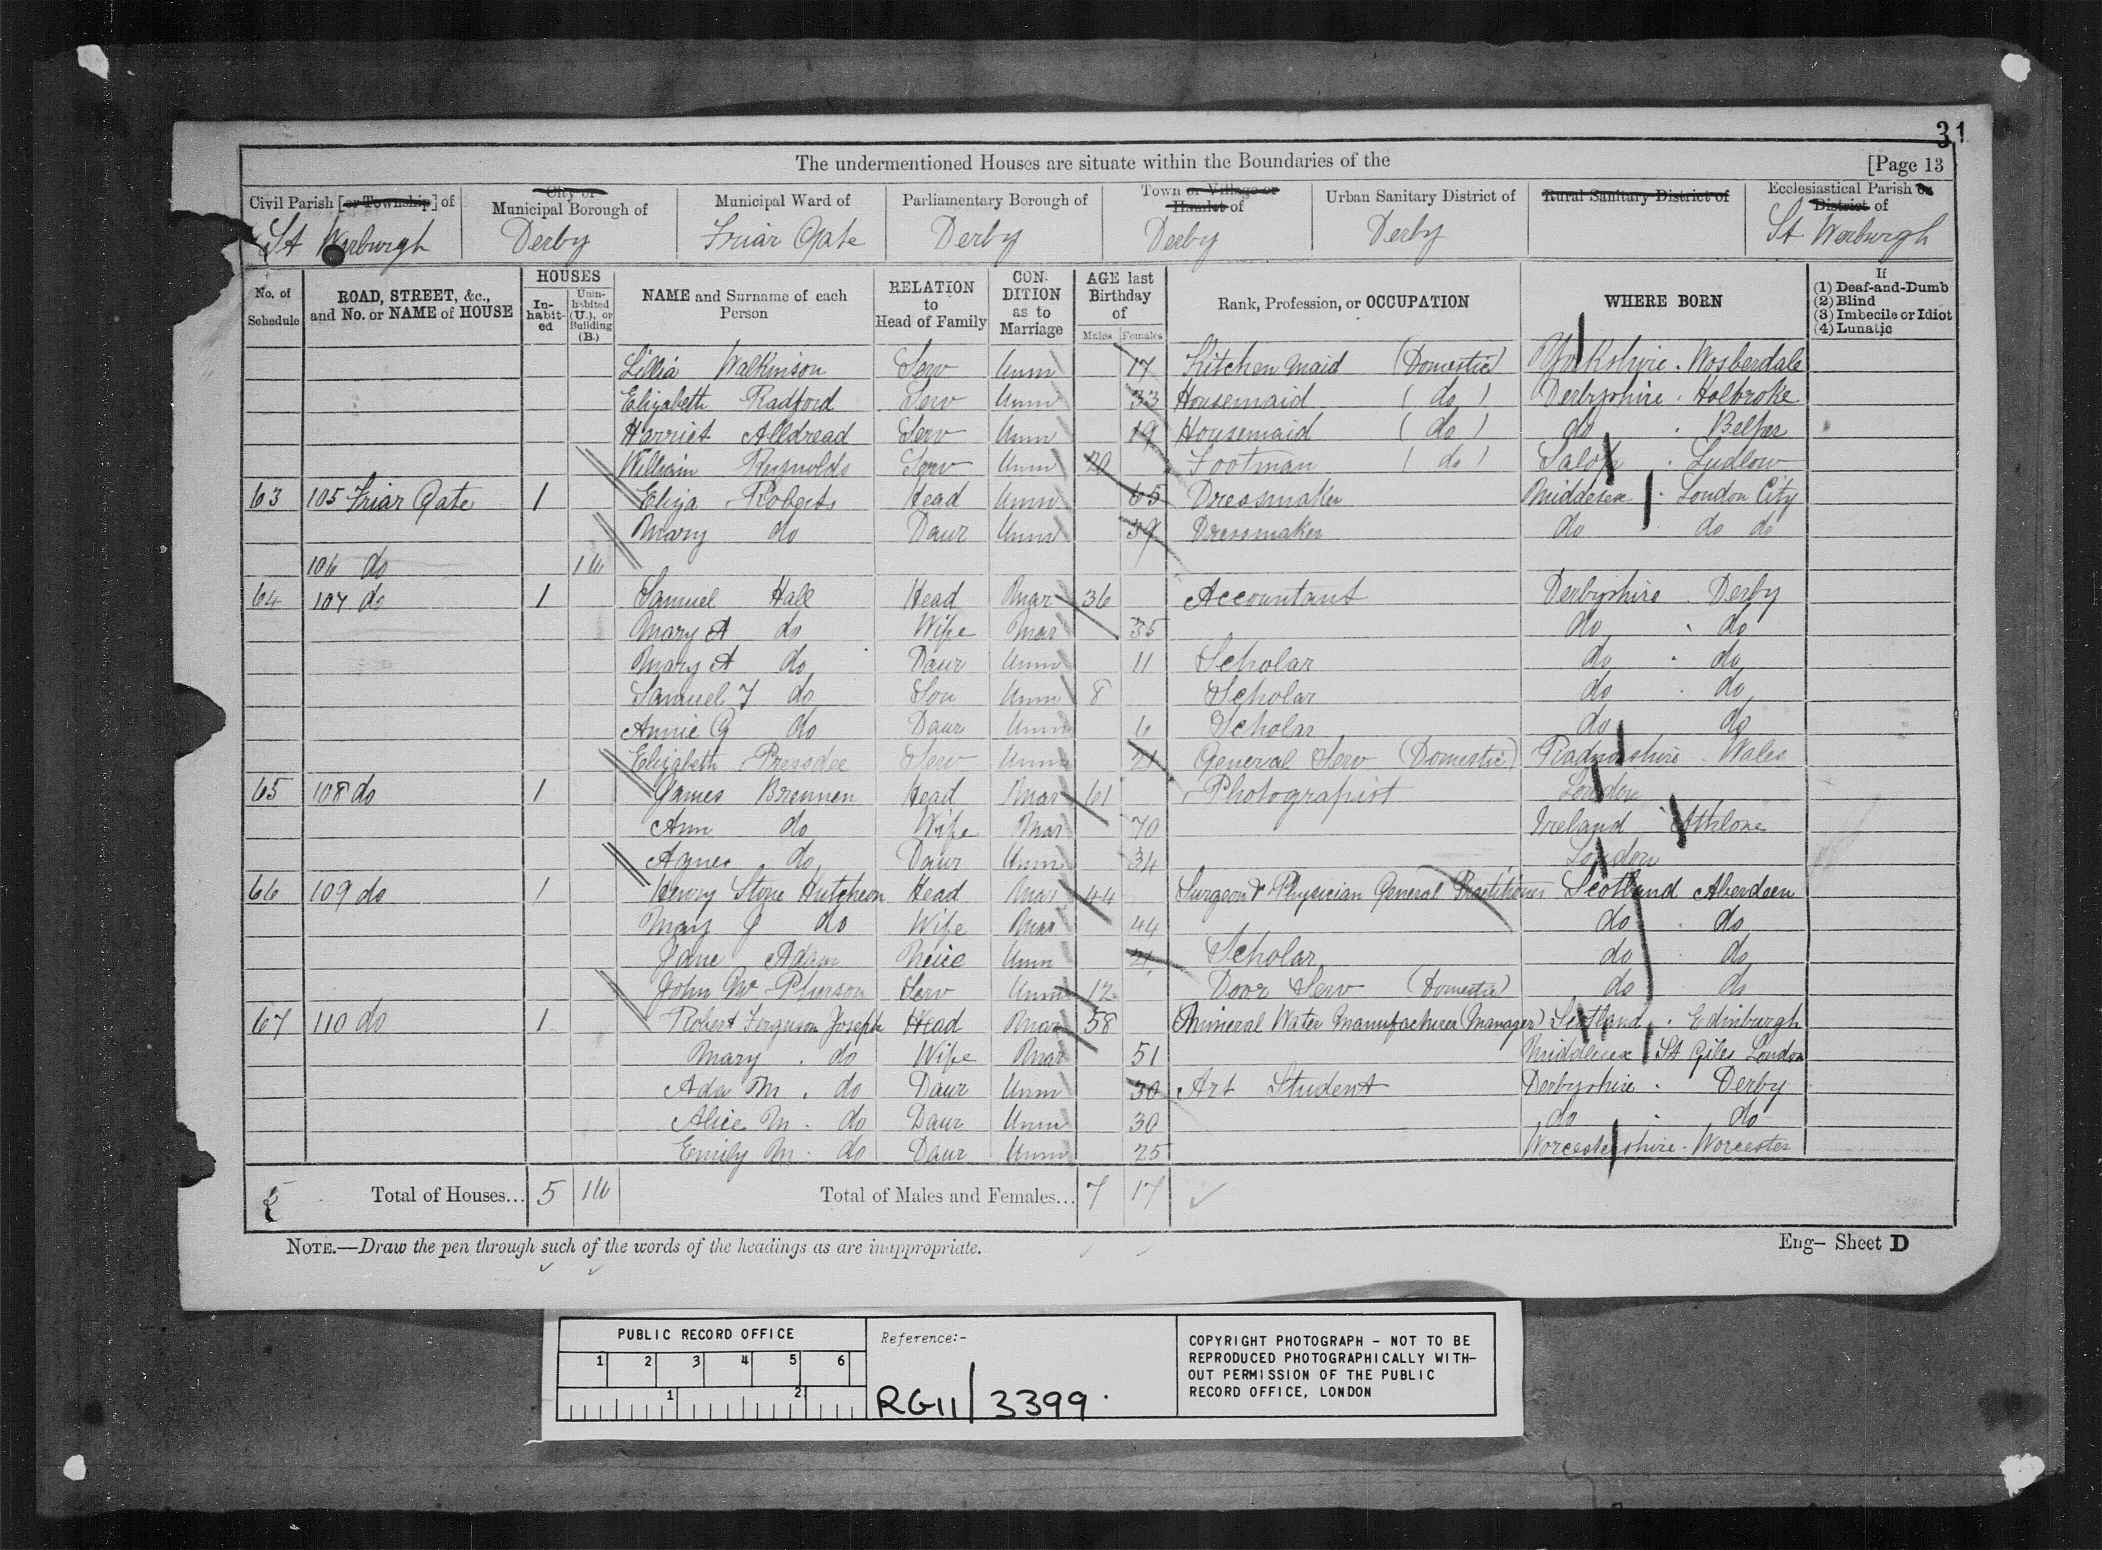 31
The undermentioned Houses are situate within the Boundaries of the [Page 13
Civil Parish [or Township] of City or Municipal Borough of Municipal Ward of Parliamentary Borough of Town or Village or Hamlet of Urban Sanitary District of Rural Sanitary District of Ecclesiastical Parish or District of
St Werburgh Derby Friar Gate Derby Derby Derby St Werburgh
No. of Schedule ROAD, STREET, &c., and No. or NAME of HOUSE HOUSES In-habit-ed Unin-habited (U.), or Building (B.) NAME and Surname of each Person RELATION to Head of Family CON-DITION as to Marriage AGE last Birthday of Males Females Rank, Profession, or OCCUPATION WHERE BORN If (1) Deaf-and-Dumb (2) Blind (3) Imbecile or Idiot (4) Lunatic
Lillia Walkinson Serv Unm 17 Kitchen Maid (Domestic) Yorkshire . Wosberdale
Elizabeth Radford Serv Unm 33 Housemaid ( do ) Derbyshire . Holbroke
Harriet Alldread Serv Unm 19 Housemaid ( do ) do . Belper
William Reynolds Serv Unm 20 Footman ( do ) Salop . Ludlow
63 105 Friar Gate 1 Eliza Roberts Head Unm 65 Dressmaker Middlesex . London City
Mary do Daur Unm 39 Dressmaker do do do
106 do 1U
64 107 do 1 Samuel Hall Head Mar 36 Accountant Derbyshire . Derby
Mary A do Wife Mar 35 do . do
Mary A do Daur Unm 11 Scholar do . do
Samuel T do Son Unm 8 Scholar do . do
Annie G do Daur Unm 6 Scholar do do
Elizabeth Pressdee Serv Unm 21 General Serv (Domestic) Radnorshire . Wales
65 108 do 1 James Brennen Head Mar 61 Photograpist London
Ann do Wife Mar 70 Ireland . Athlone
Agnes do Daur Unm 34 London
66 109 do 1 Henry Stone Hutcheon Head Mar 44 Surgeon & Physician General Practitioner Scotland Aberdeen
Mary J do Wife Mar 44 do . do
Jane Adam Neice Unm 21 Scholar do . do
John Mc Pherson Serv Unm 12 Door Serv (Domestic) do do
67 110 do 1 Robert Ferguson Joseph Head Mar 58 Mineral Water Manufacturer (Manager) Scotland . Edinburgh
Mary . do Wife Mar 51 Middlesex St Giles London
Ada M . do Daur Unm 30 Art Student Derbyshire . Derby
Alice M . do Daur Unm 30 do . do
Emily M . do Daur Unm 25 Worcestershire . Worcester
Total of Houses... 5 1U Total of Males and Females... 7 17
NOTE.—Draw the pen through such of the words of the headings as are inappropriate. Eng– Sheet D
PUBLIC RECORD OFFICE
1 2 3 4 5 6
1 2
Reference:-
RG11/3399
COPYRIGHT PHOTOGRAPH - NOT TO BE
REPRODUCED PHOTOGRAPHICALLY WITH-
OUT PERMISSION OF THE PUBLIC
RECORD OFFICE, LONDON